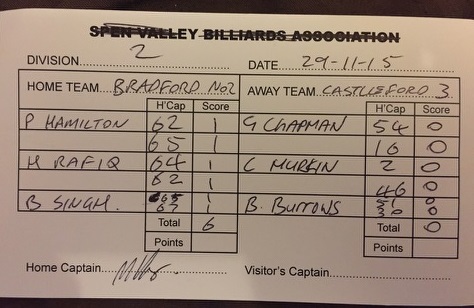 SPEN VALLEY BILLIARDS ASSOCIATION
DIVISION 2 DATE 29-11-15
HOME TEAM BRADFORD NO2 AWAY TEAM CASTLEFORD 3
H'Cap Score H'Cap Score
P HAMILTON 62 1 G CHAPMAN 54 0
65 1 16 0
H RAFIQ 64 1 C MURKIN 2 0
62 1 46 0
B SINGH. 1 B. BURROWS 51 0
67 1 30 0
Total 6 Total 0
Points Points
Home Captain Visitor's Captain